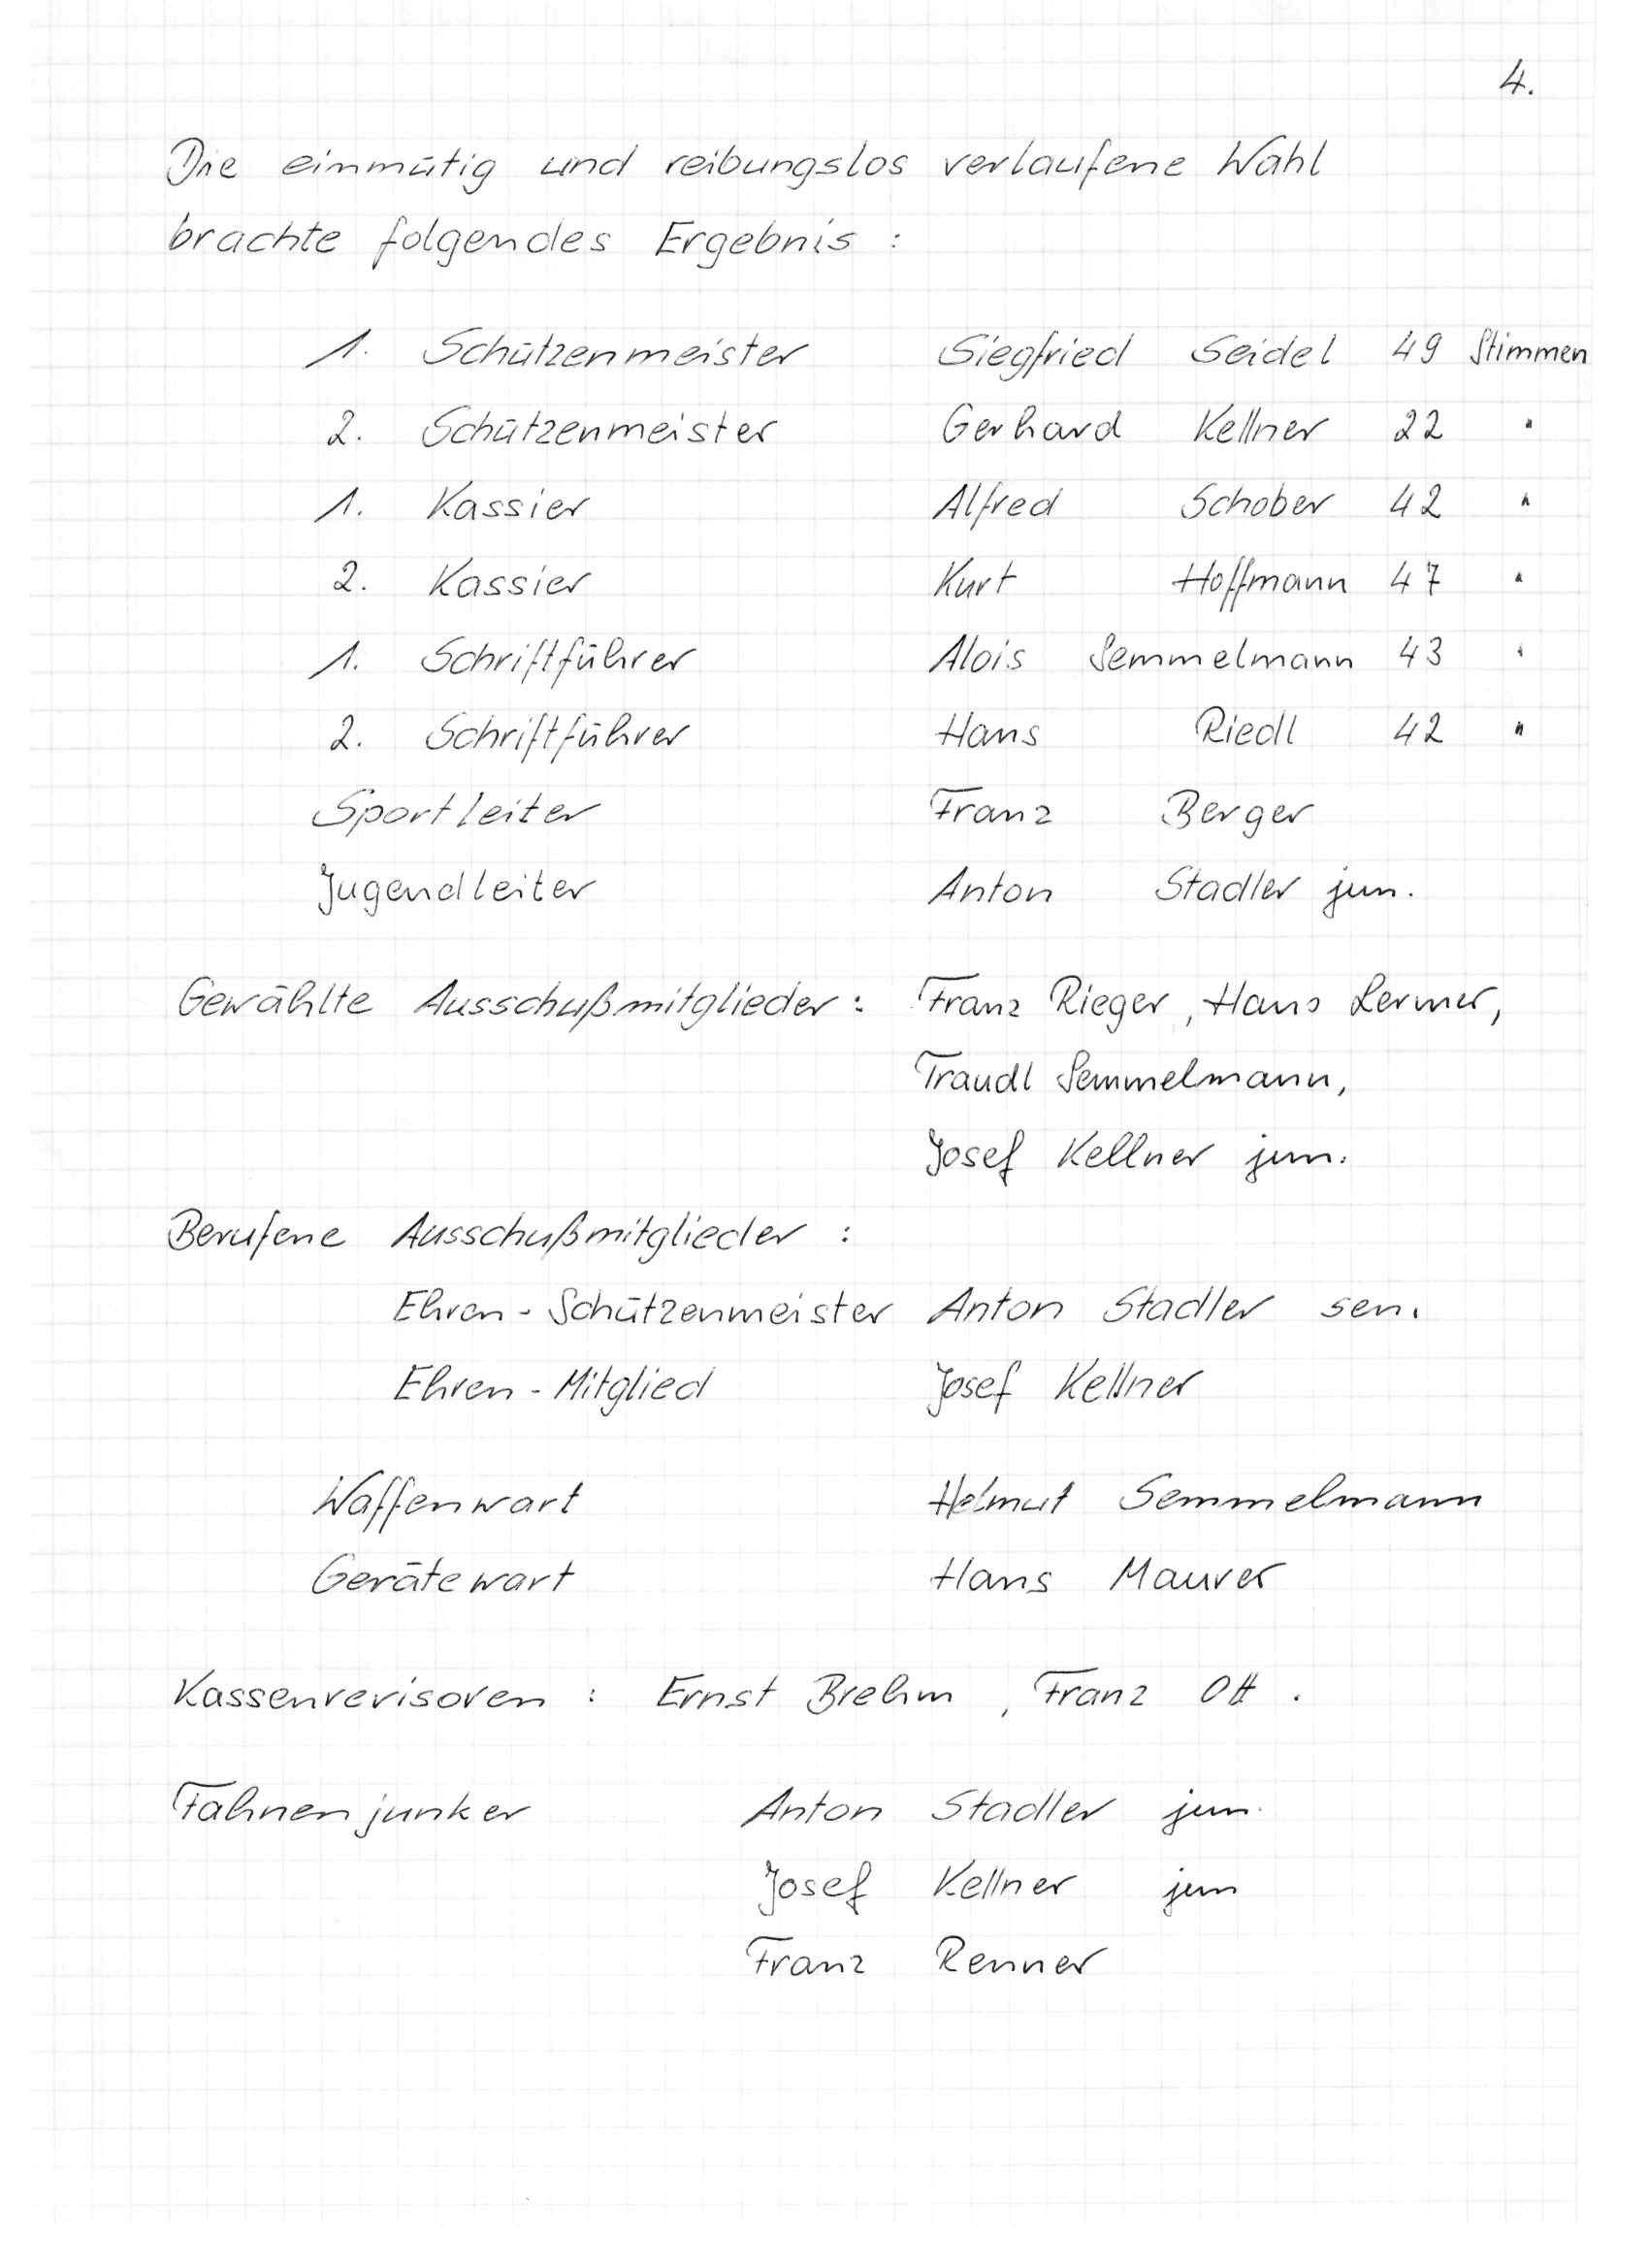 4.
Die einmütig und reibungslos verlaufene Wahl
brachte folgendes Ergebnis :
1. Schützenmeister Siegfried Seidel 49 Stimmen
2. Schützenmeister Gerhard Kellner 22 "
1. Kassier Alfred Schober 42 "
2. Kassier Kurt Hoffmann 47 "
1. Schriftführer Alois Semmelmann 43 "
2. Schriftführer Hans Riedl 42 "
Sportleiter Franz Berger
Jugendleiter Anton Stadler jun.
Gewählte Ausschußmitglieder : Franz Rieger, Hans Lermer,
Traudl Semmelmann,
Josef Kellner jun.
Berufene Ausschußmitglieder :
Ehren - Schützenmeister Anton Stadler sen.
Ehren - Mitglied Josef Kellner
Waffenwart Helmut Semmelmann
Gerätewart Hans Maurer
Kassenrevisoren : Ernst Brehm , Franz Ott .
Fahnenjunker Anton Stadler jun.
Josef Kellner jun
Franz Renner